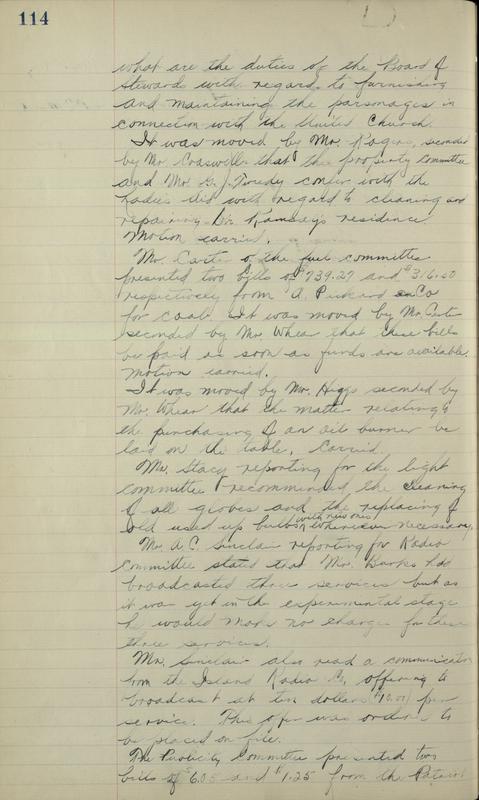 114
what are the duties of the Board of
Stewards with regard to furnishing
and maintaining the parsonages in
connection with the United Church.
It was moved by Mr. Rogers, seconded
by Mr. Croswell that the property committee
and Mr. G. J. Tweedy confer with the
Ladies Aid with regard to cleaning and
repairing Dr. Ramsay's residence
Motion carried.
Mr. Carter of the fuel committee
presented two bills of $739.27 and $316.50
respectively from A. Pickard & Co
for coal. It was moved by Mr. Carter
seconded by Mr. Whear that these bills
be paid as soon as funds are available.
Motion carried.
It was moved by Mr. Higgs seconded by
Mr. Whear that the matter relating to
the purchasing of an oil burner be
laid on the table. Carried.
Mr. Stacy reporting for the light
committee recommended the cleaning
of all globes and the replacing of
old used up bulbs with new ones wherever necessary.
Mr. A. C. Sinclair reporting for Radio
Committee stated that Mr. Burke had
broadcasted three services but as
it was yet in the experimental stage
he would make no charges for these
three services.
Mr. Sinclair also read a communication
from the Island Radio Co. offering to
broadcast at ten dollars ($10.00) per
service. This offer was ordered to
be placed on file.
The Publicity Committee presented two
bills of $6.05 and $1.25 from the Patriot